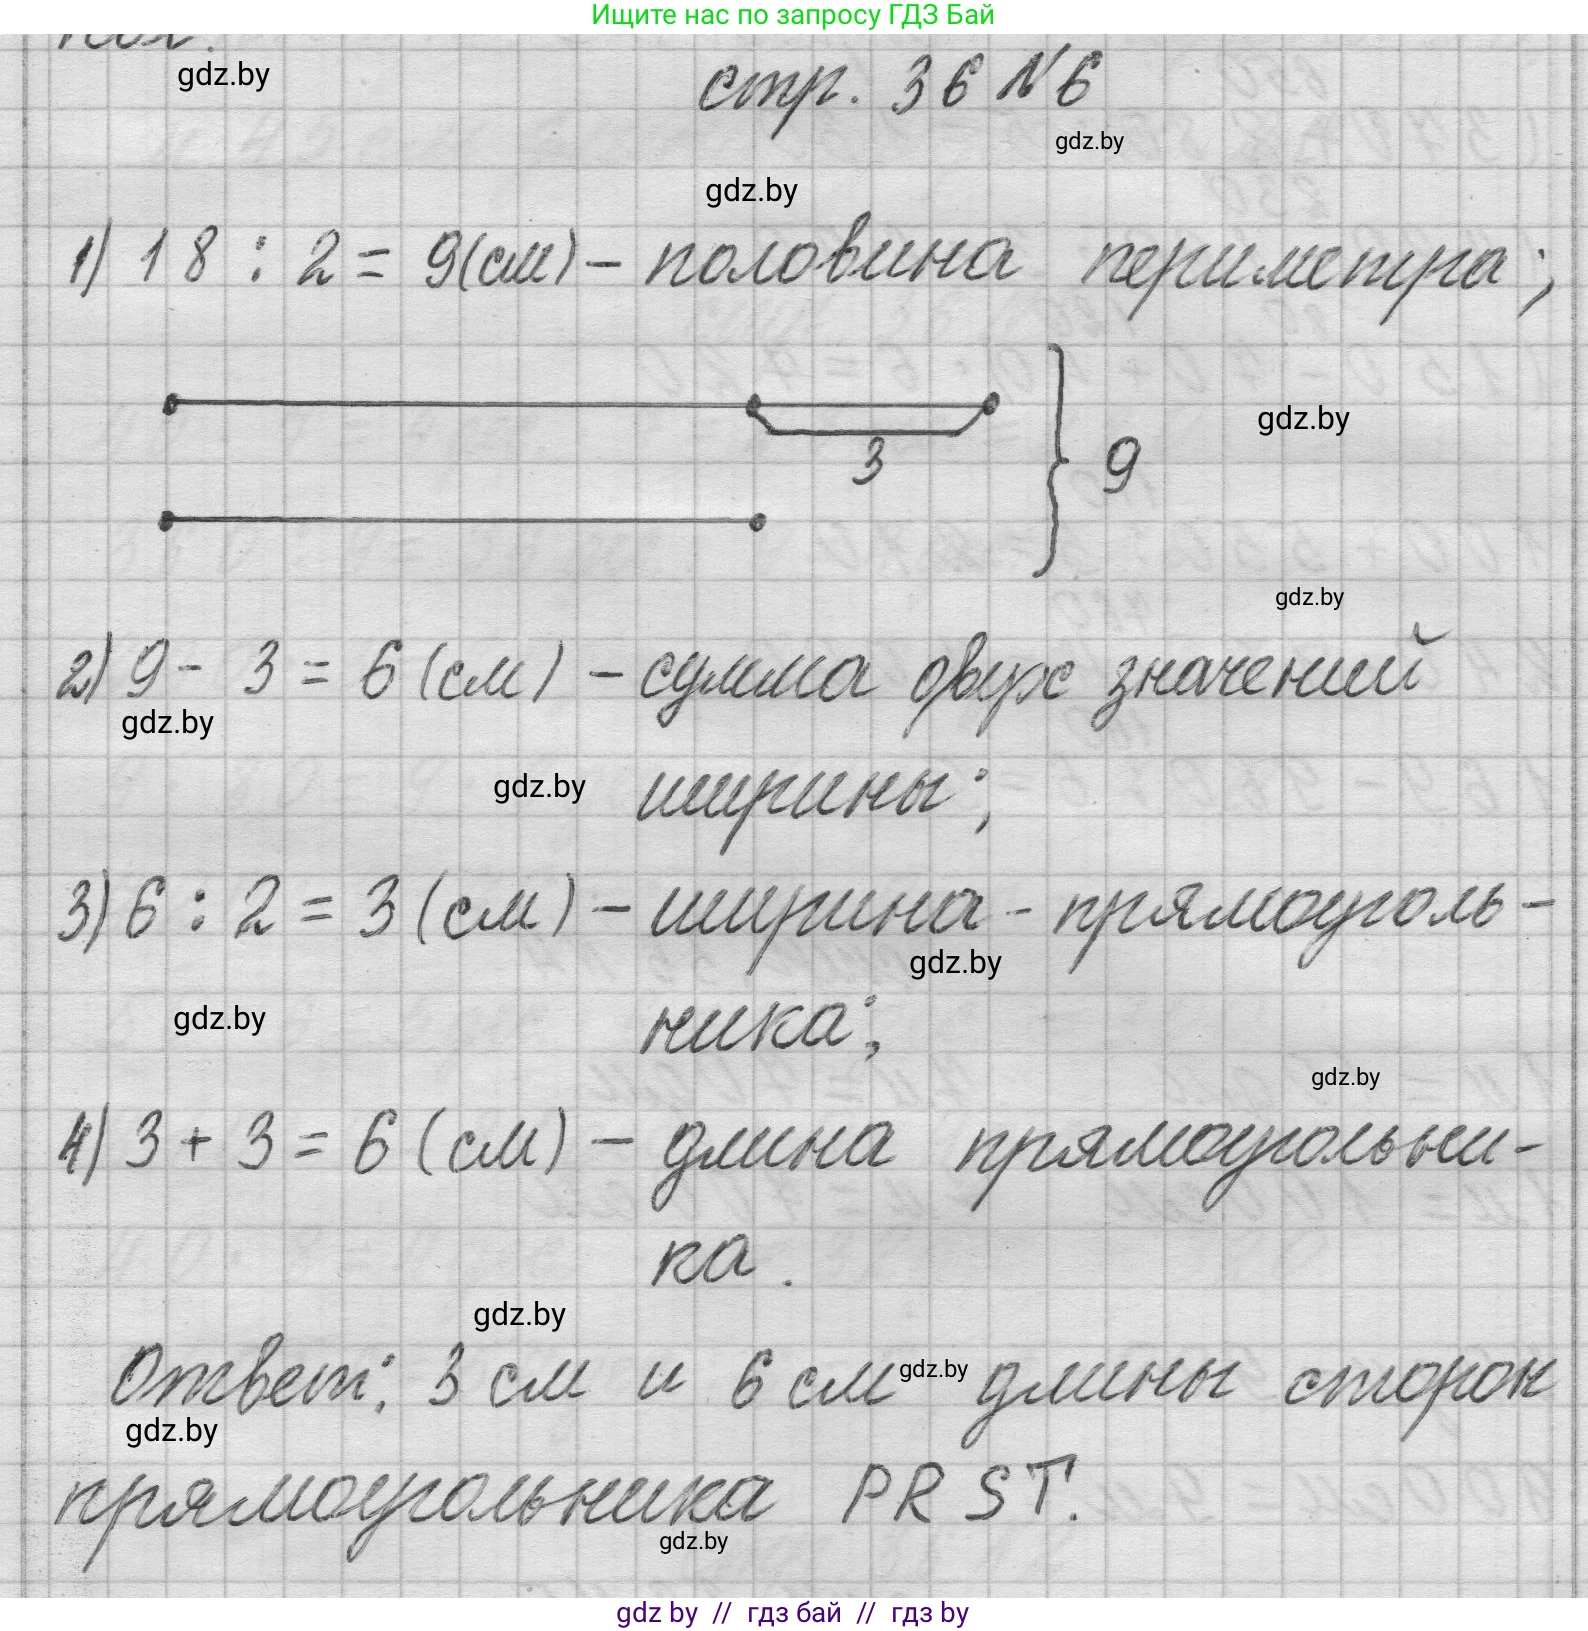 Ищите нас по запросу ГДЗ Бай
gdz.by
стр. 36 №6
gdz.by
gdz.by
1) 18 : 2 = 9(см) – половина периметра;
3
9
gdz.by
gdz.by
2) 9 - 3 = 6 (см) – сумма двух значений
gdz.by
gdz.by
ширины;
3) 6 : 2 = 3 (см) – ширина - прямоуголь-
gdz.by
gdz.by
ника;
gdz.by
4) 3 + 3 = 6 (см) – длина прямоугольни-
ка.
gdz.by
Ответ: 3 см и 6 см gdz.by длины сторон
gdz.by
прямоугольника PRST.
gdz.by
gdz by // гдз бай // гдз by